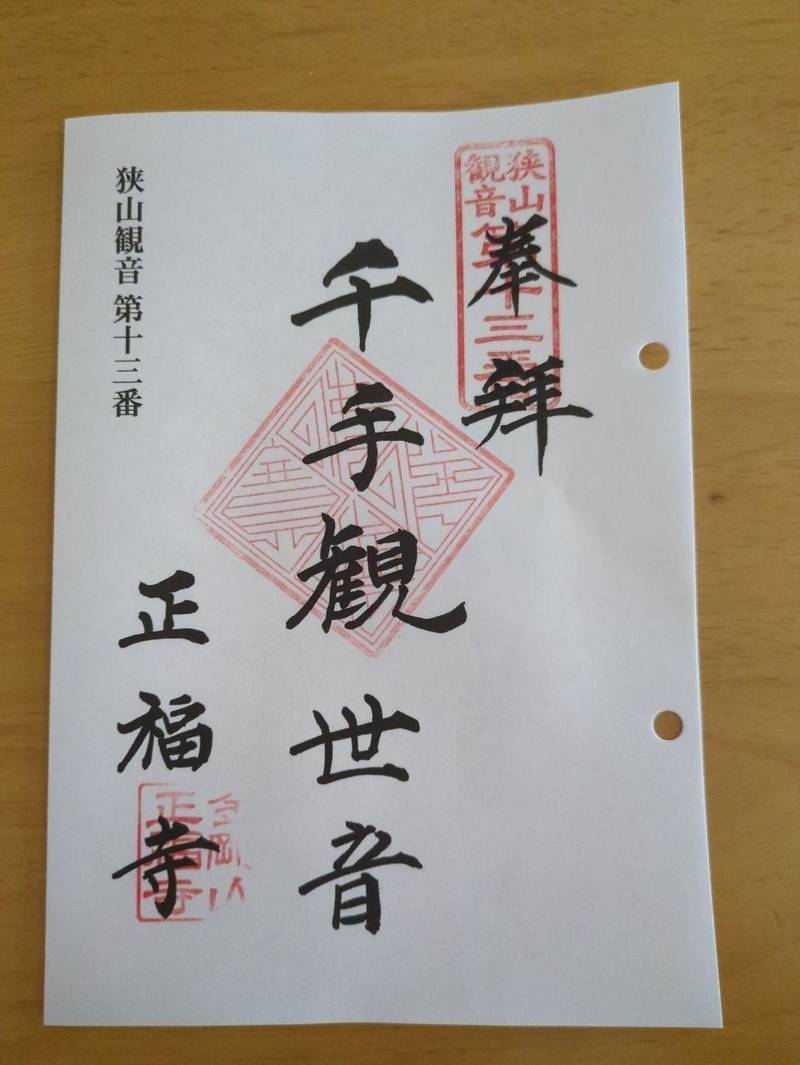 狭山観音第十三番
奉拜
千手観世音
狭山観音 第十三番
正福寺
正福寺